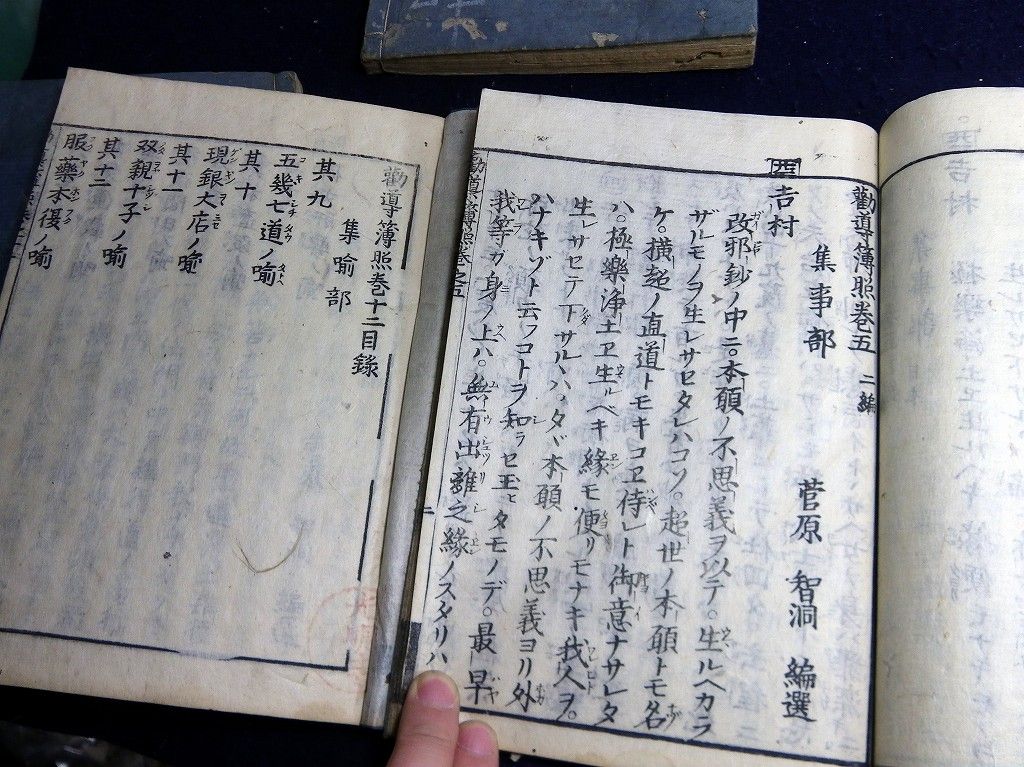 勸導簿照巻五 二編
集事部 菅原 智洞 編選
西吉村
改邪鈔ノ中ニ。本願ノ不思義ヲ以テ。生ルヘカラ
ザルモノヲ生レサセタレハコソ。超世ノ本願トモ名
ケ。横超ノ直道トモキコヱ侍レト御意ナサレタ
ハ。極樂浄土ヱ生ルベキ緣モ便リモナキ我人ヲ。
生レサセテ下サルヽハ。タヾ本願ノ不思義ヨリ外
ハナキゾト云フコトヲ知ラセ玉ヒタモノデ。最早
我等カ身ノ上ハ。無有出離之緣ノスタリハ
勸導簿照巻之五
勸導簿照巻十二目錄
集喻部
其九
五幾七道ノ喻
其十
現銀大店ノ喻
其十一
双親十子ノ喻
其十二
服藥本復ノ喻